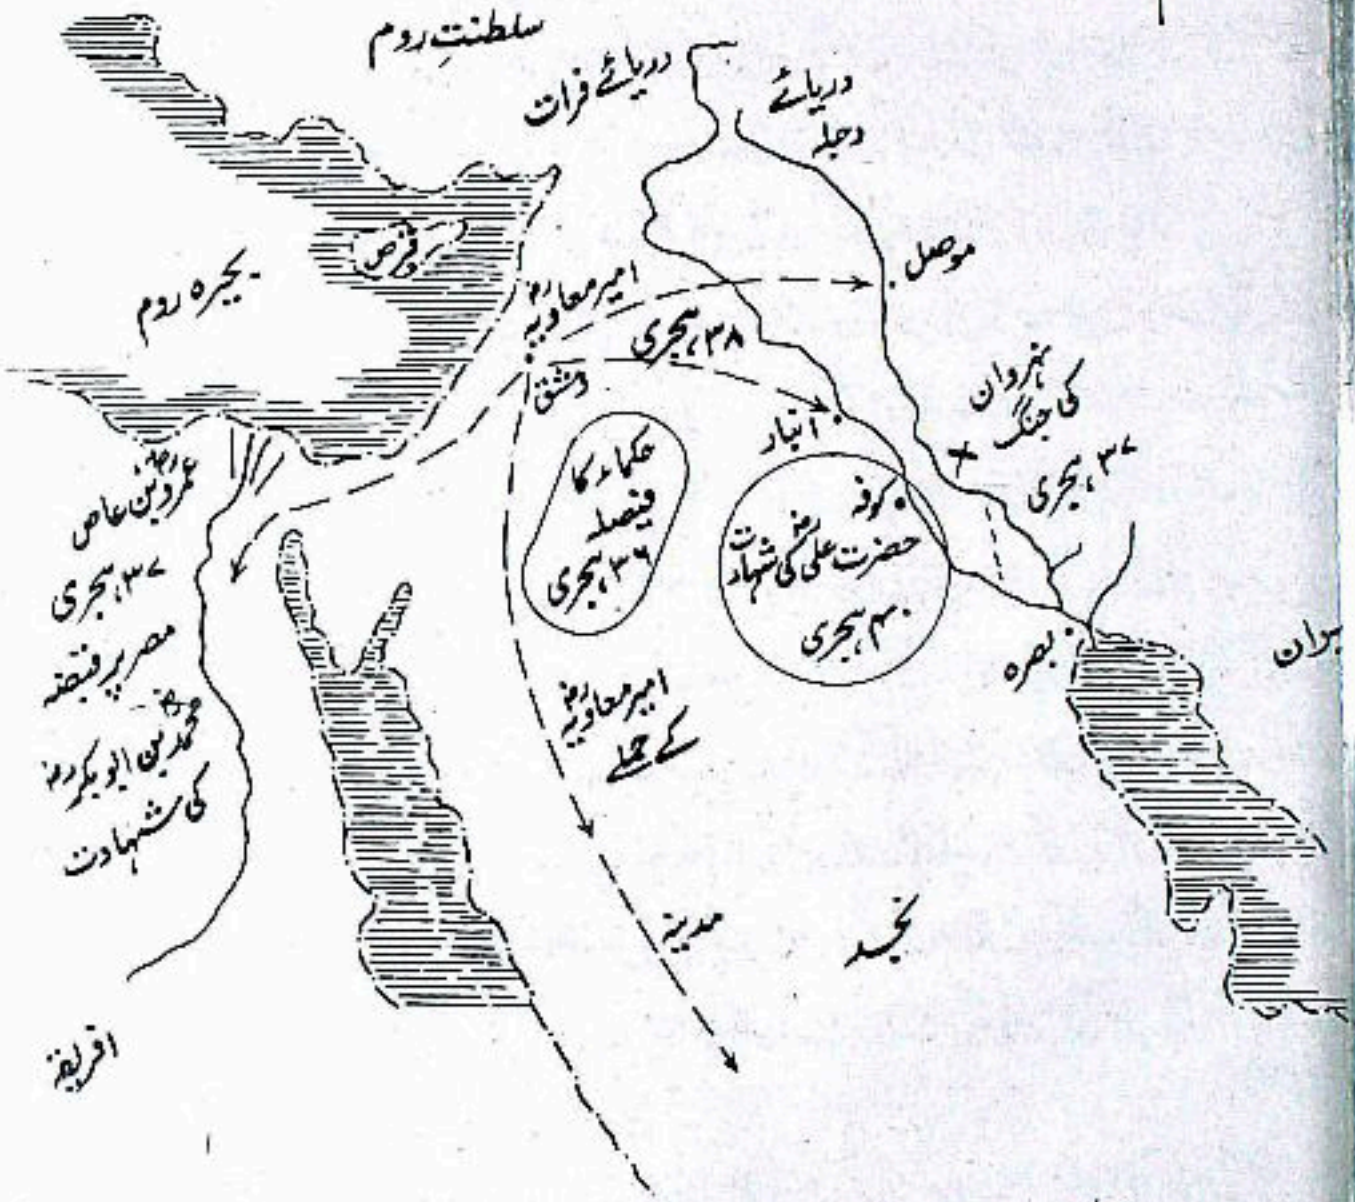 سلطنتِ روم
دریائے فرات
دریائے
دجلہ
قبرص
بحیرہ روم
موصل
امیر معاویہؓ
دمشق
۳۸، ہجری
انبار
نہروان
کی جنگ
۳۷، ہجری
حکماء کا
فیصلہ
۳۶، ہجری
کوفہ
حضرت علیؓ کی شہادت
۴۰، ہجری
بصرہ
عمرو بن عاصؓ
۳۷، ہجری
مصر پر قبضہ
محمدؓ بن ابوبکرؓ
کی شہادت
امیر معاویہؓ
کے حملے
مدینہ
نجد
افریقہ